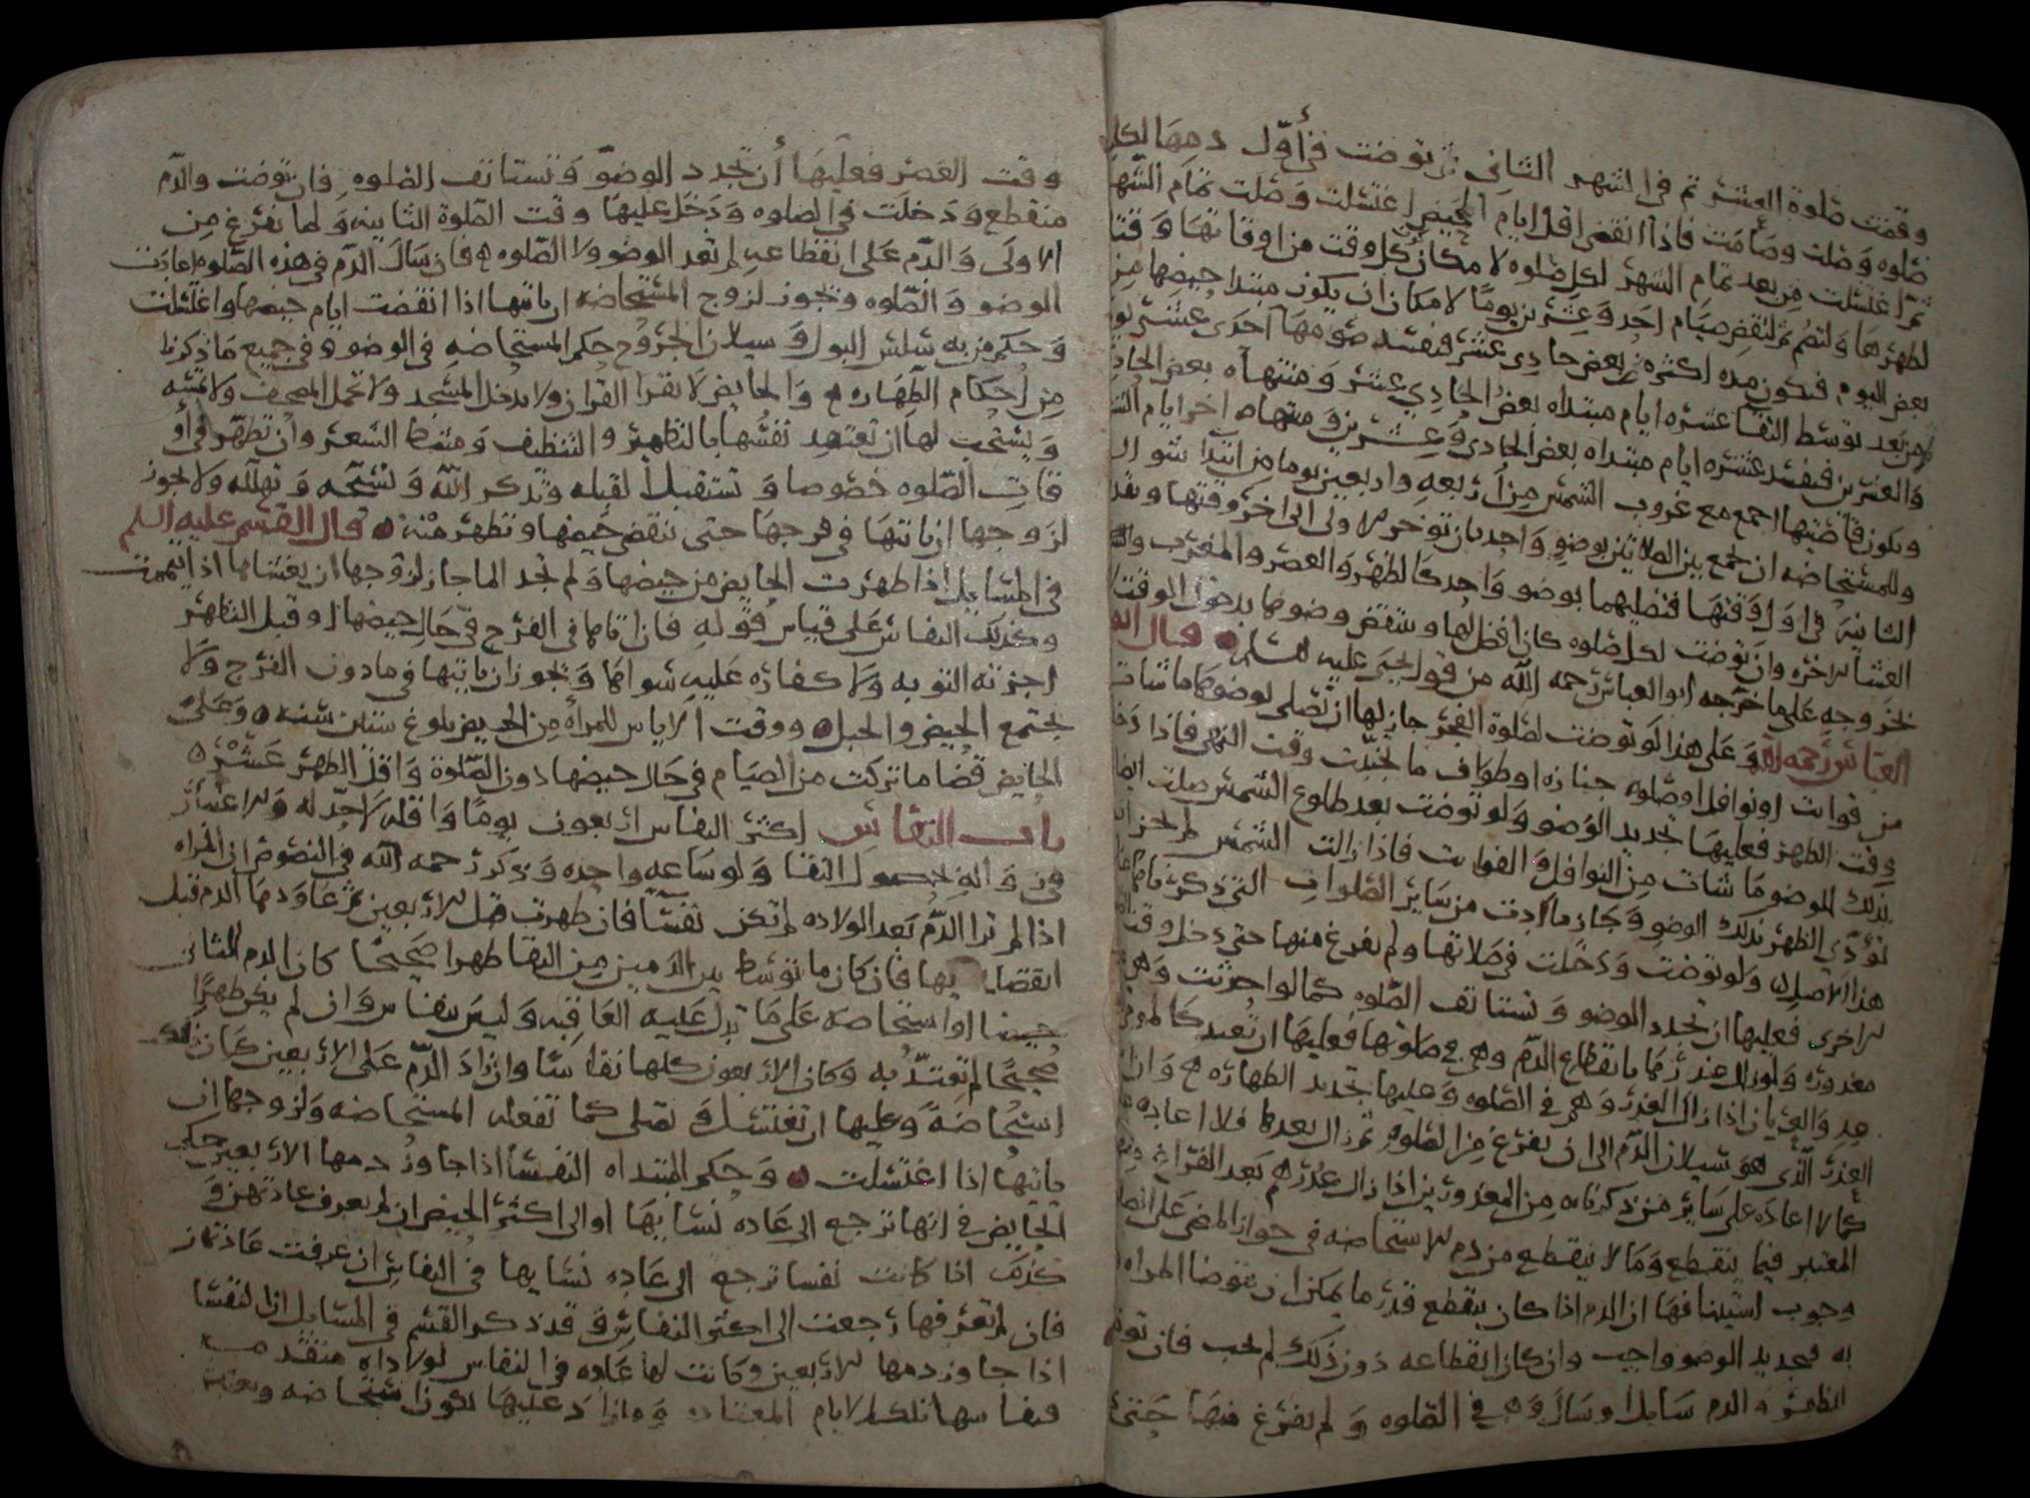 وقضت صلوة العشر ثم في الشهر الثاني توضت في أول دمها لكل
صلوه وصلت وصامت فاذا انقضى اقل ايام الحيض اغتسلت وصلت تمام الشهر
ثم اغتسلت من بعد تمام الشهر لكل صلوه لامكان كل وقت من اوقاتها وقتا
لطهرها ولتصم ثم لتقض صيام احد وعشرين يوما لامكان ان يكون مبتدا حيضها من
بعض اليوم فيكون مده اكثره بعض حادي عشر فيفسد صومها احدى عشر يوما
من بعد توسط النقا عشره ايام مبتداه بعض الحادي عشر ومنتهاه بعض الحادي
والعشرين فيفسد عشره ايام مبتداه بعض الحادي وعشرين ومنتهاه اخر ايام الشهر
ويكون قاضيتها اجمع مع غروب الشمس من أربعه واربعين يوما من ابتدا شوال
وللمستحاضه ان تجمع بين الصلاتين بوضو واحد بان توخر الاولى الى اخر وقتها وتقدم
الثانيه في اول وقتها فتصليهما بوضو واحد كالظهر والعصر والمغرب والعشا
العشا الاخره وان توضت لكل صلوه كان افضل لها وينتقض وضوها بدخول الوقت
بخروجه على ما خرجه ابو العباس رحمه الله من قول يحيى عليه السلم قال ابو
العباس رحمه الله وعلى هذا لو توضت لصلوة الفجر جاز لها ان تصلي لوضوها ما شات
من فوايت او نوافل او صلوه جنازه او طواف ما تجنبت وقت النهي فاذا دخل
وقت الظهر فعليها تجديد الوضو ولو توضت بعد طلوع الشمس صلت ايضا
بذلك الوضو ما شات من النوافل والفوايت فاذا زالت الشمس لم يجز ان
تودي الظهر بذلك الوضو وجاز ما ارادت من ساير الصلوات التي ذكرناها
هذا الاصل ولو توضت ودخلت في صلاتها ولم تفرغ منها حتى دخل وقت
الاخرى فعليها ان تجدد الوضو وتستانف الصلوه كما لو احدثت وهي
معذوره ولو زال عذرها بانقطاع الدم وهي في صلوتها فعليها ان تعيد كالمومي
والعريان اذا زال العذر وهو في الصلوه وعليها تجديد الطهاره وان
العذر الذي هو سيلان الدم الى ان تفرغ من الصلوه ثم زال بعدها فلا اعاده
كما لا اعاده على ساير من ذكرناه من المعذورين اذا زال عذرهم بعد الفراغ
المعتبر فيما ينقطع وما لا ينقطع من دم الاستحاضه في جواز المضي على الصلوه
وجوب استينافها ان الدم اذا كان ينقطع قدر ما يمكن ان تتوضا المراه
به فتجديد الوضو واجب وان كان انقطاعه دون ذلك لم يجب فان توضت
الظهر والدم سايل او سال وهي في الصلوه ولم تفرغ منها حتى
وقت العصر فعليها أن تجدد الوضو وتستانف الصلوه فان توضت والدم
منقطع ودخلت في الصلوه ودخل عليها وقت الصلوة الثانيه ولما تفرغ من
الاولى والدم على انقطاعه لم تعد الوضو ولا الصلوه فان سال الدم في هذه الصلوه اعادت
الوضو والصلوه ويجوز لزوج المستحاضه ان ياتيها اذا انقضت ايام حيضها واغتسلت
وحكم من به سلس البول وسيلان الجروح حكم المستحاضه في الوضو وفي جميع ما ذكرنا
من احكام الطهاره والحايض لا تقرا القران ولا تدخل المسجد ولا تحمل المصحف ولا تمسه
ويستحب لها ان تتعهد نفسها بالتطهير والتنظيف ومشط الشعر وان تطهر في أو
قات الصلوه خصوصا وتستقبل القبله وتذكر الله وتسبحه وتهلله ولا يجوز
لزوجها ان ياتيها في فرجها حتى تنقضي حيضها وتطهر منه قال القسم عليه السلم
في المسايل اذا طهرت الحايض من حيضها ولم تجد الما جاز لزوجها ان يغشاها اذا تيممت
وكذلك النفاس على قياس قوله فان اتاها في الفرج في حال حيضها او قبل التطهر
اجزته التوبه ولا كفاره عليه سواها ويجوز ان ياتيها في ما دون الفرج ولا
يجتمع الحيض والحبل ووقت الاياس للمرأه من الحيض بلوغ ستين سنه وعلى
الحايض قضا ما تركت من الصيام في حال حيضها دون الصلوة واقل الطهر عشره
باب النفاس اكثر النفاس اربعون يوما واقله لا حد له والاعتبار
فيه والو حصول النقا ولو ساعه واحده وذكر رحمه الله في النصوص ان المراه
اذا لم ترا الدم بعد الولاده لم تكن نفسا فان طهرت قبل الاربعين ثم عاودها الدم قبل
انقضايها فان كان ما توسط بين الدمين من النقا طهرا صحيحا كان الدم الثاني
حيضا او استحاضه على ما تدل عليه العاقبه وليس بنفاس وان لم يكن طهرا
صحيحا لم تعتد به وكان الاربعون كلها نفاسا وان زاد الدم على الاربعين كان ذلك
استحاضة وعليها ان تغتسل وتصلي كما تفعله المستحاضه ولزوجها ان
ياتيها اذا اغتسلت وحكم المبتداه النفسا اذا جاوز دمها الاربعين حكم
الحايض في انها ترجع الى عاده نسايها او الى اكثر الحيض ان لم تعرف عادتهن و
كذلك اذا كانت نفسا ترجع الى عاده نسايها في النفاس ان عرفت عادتهن
فان لم تعرفها رجعت الى اكثر النفاس وقد ذكر القسم في المسايل ان النفسا
اذا جاوز دمها الاربعين وكانت لها عاده في النفاس لولاداه متقدمه
فنفاسها تلك الايام المعتاده وما زاد عليها تكون استحاضه